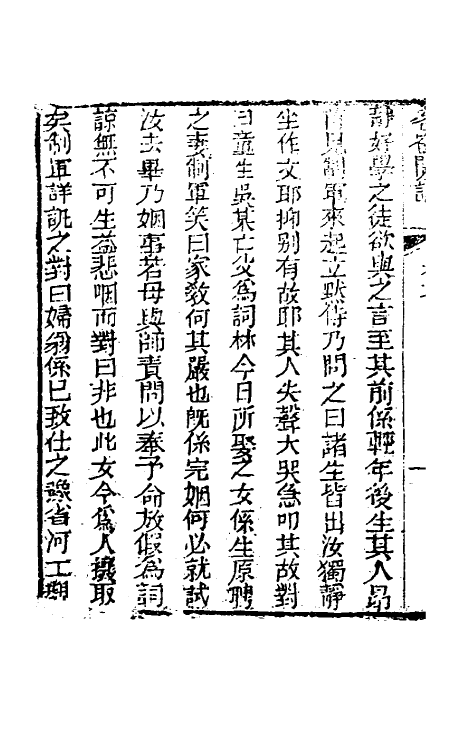 靜好學之徒欲與之言至其前係輕年後生其人昂
首見制軍來起立默待乃問之曰諸生皆出汝獨靜
坐作文耶抑別有故耶其人失聲大哭急叩其故對
曰童生吳某亡父為詞林今日所娶之女係生原聘
之妻制軍笑曰家教何其嚴也既係完姻何必就試
汝去畢乃姻事若母與師責問以奉予命放假為詞
諒無不可生益悲咽而對曰非也此女今為人攘取
矣制軍詳訊之對曰婦翁係已致仕之豫省河工